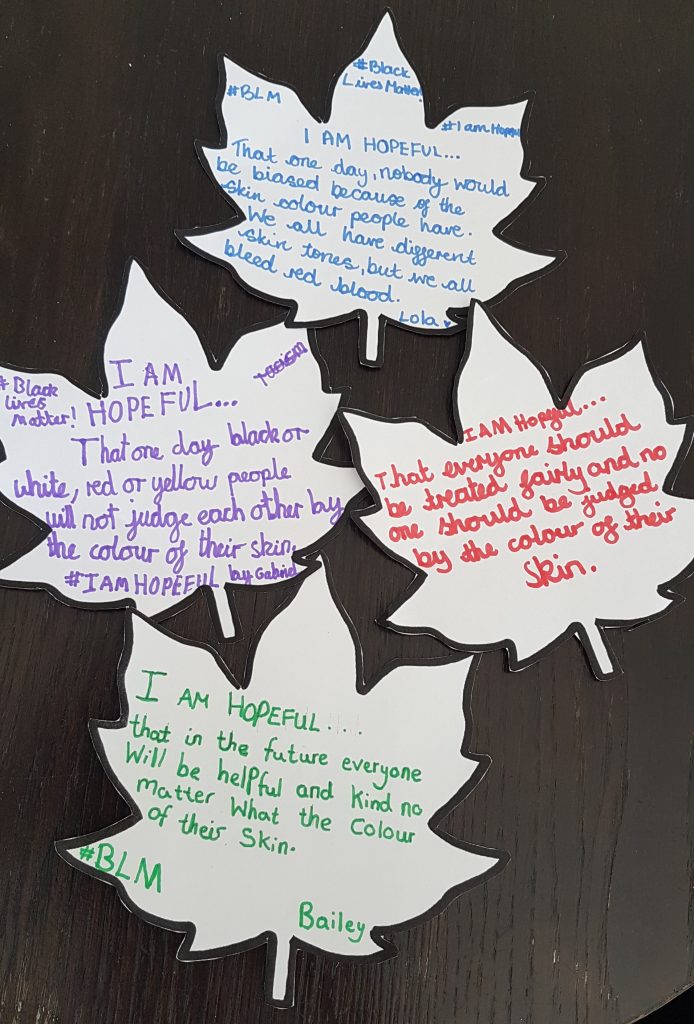 #BLM
#Black
Lives Matter!
#I am Hopeful
I AM HOPEFUL...
That one day, nobody would
be biased because of the
skin colour people have.
We all have different
skin tones, but we all
bleed red blood.
Lola
#Black
lives
matter!
I AM
HOPEFUL...
That one day black or
white, red or yellow people
will not judge each other by
the colour of their skin.
#I AM HOPEFUL by Gabriel
I AM Hopeful...
That everyone should
be treated fairly and no
one should be judged
by the colour of their
skin.
I AM HOPEFUL....
that in the future everyone
Will be helpful and kind no
matter What the Colour
of their Skin.
#BLM
Bailey